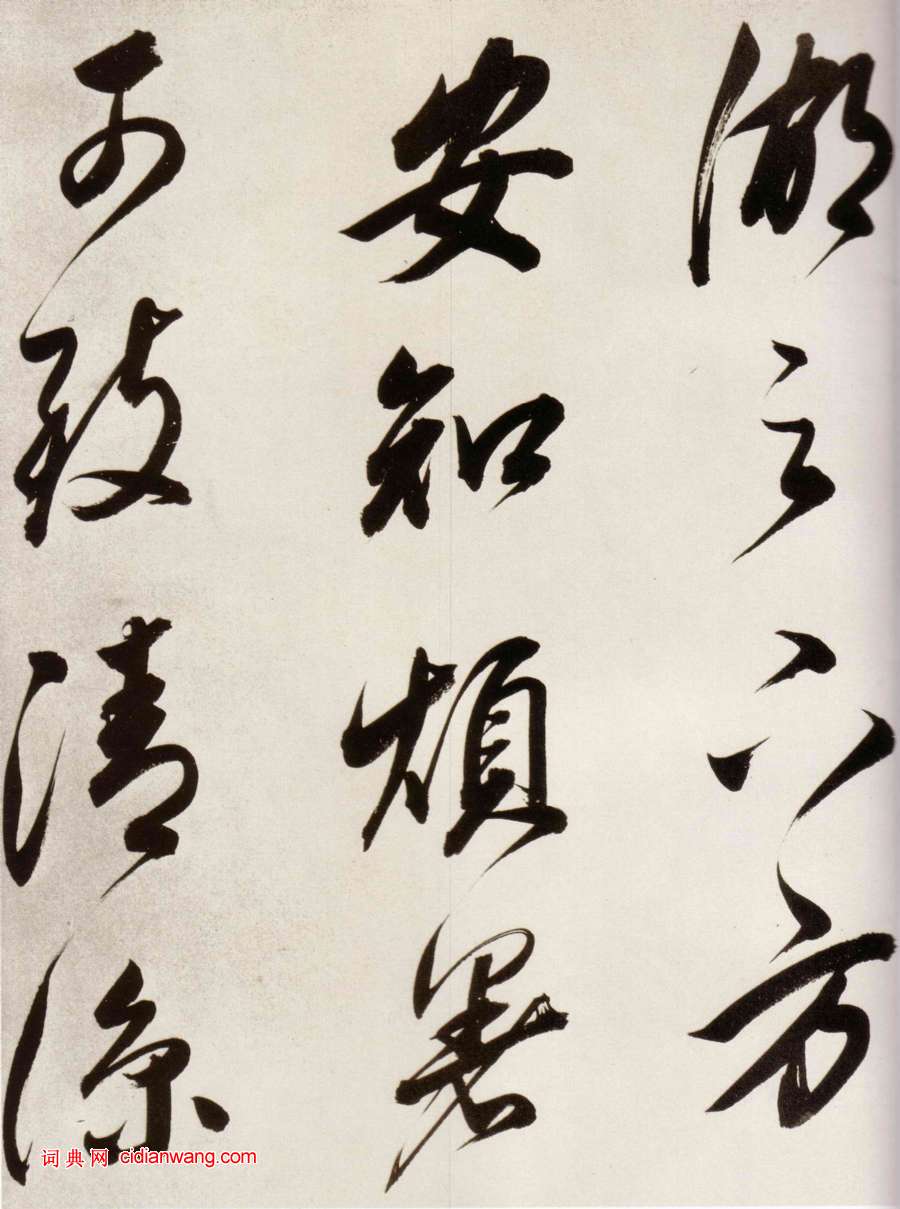 湖之方
安知煩暑
可致清涼
词典网 cidianwang.com